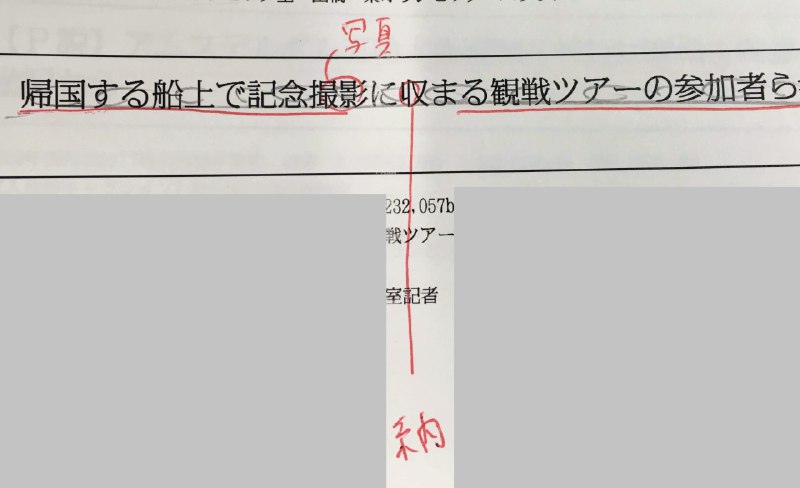 写真
帰国する船上で記念撮影に収まる観戦ツアーの参加者ら
232,057b
戦ツアー
室記者
納